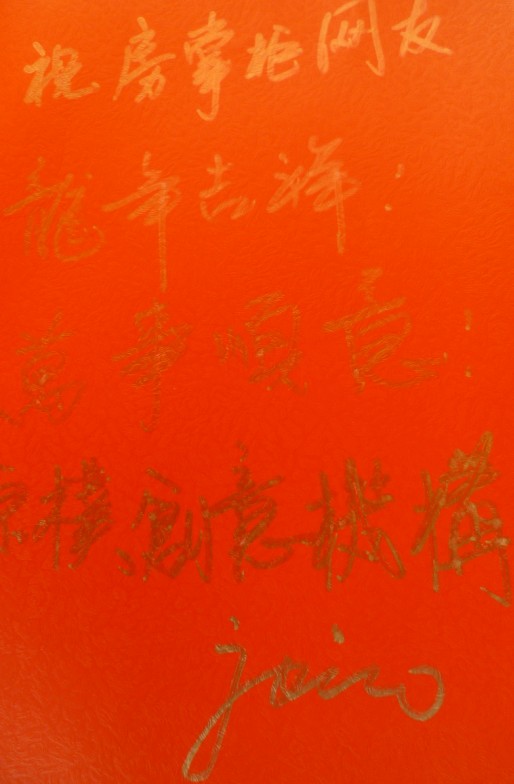 祝房掌柜网友
龍年吉祥!
萬事順意!
創意機構